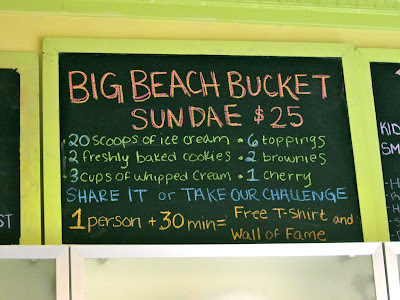 BIG BEACH BUCKET
SUNDAE $25
•20 scoops of ice cream • 6 toppings
•2 freshly baked cookies • 2 brownies
•3 cups of whipped cream • 1 cherry
SHARE IT or TAKE OUR CHALLENGE
1 person + 30 min = Free T-Shirt and
Wall of Fame
ST
KID
SM